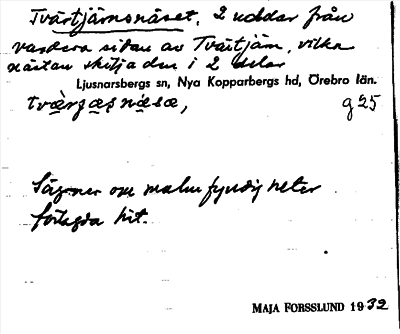 Tvärtjärnsnäset, 2 uddar från
vardera sidan av Tvärtjärn, vilka
nästan skilja den i 2 delar
Ljusnarsbergs sn, Nya Kopparbergs hd, Örebro län.
g 25
Sägner om malmfyndigheter
förlagda hit.
MAJA FORSSLUND 1932